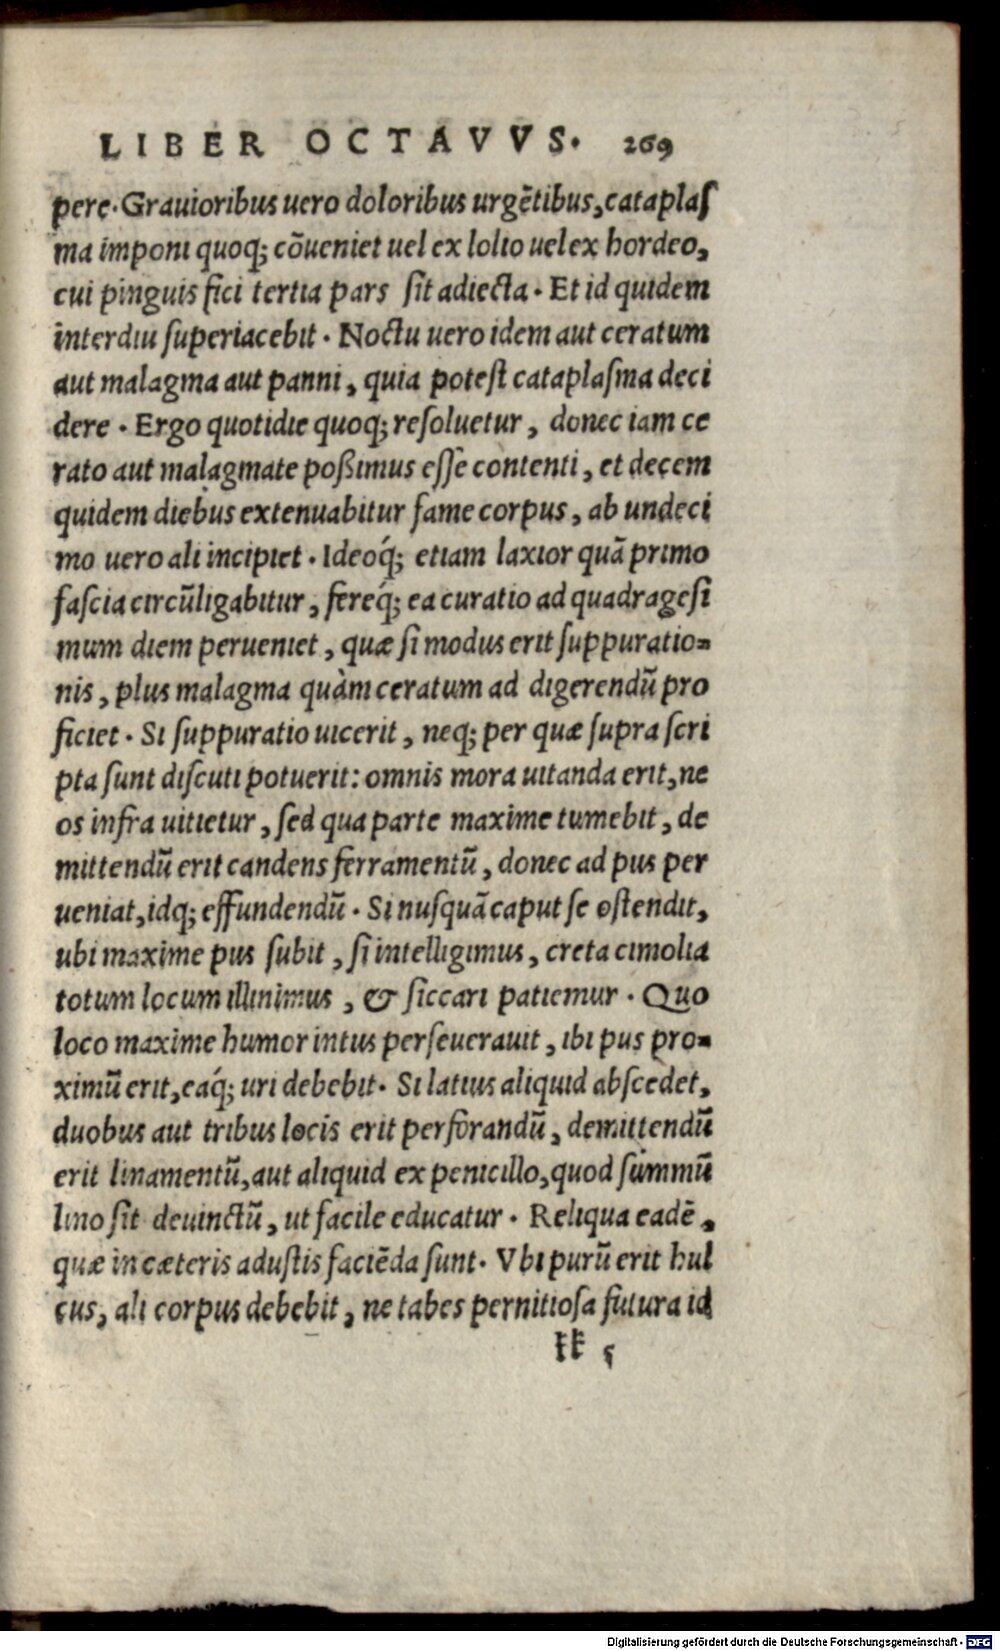 LIBER OCTAVVS. 269
pere. Grauioribus uero doloribus urgẽtibus, cataplaſ
ma imponi quoq; cõueniet uel ex lolio uel ex hordeo,
cui pinguis fici tertia pars ſit adiecta. Et id quidem
interdiu ſuperiacebit. Noctu uero idem aut ceratum
aut malagma aut panni, quia poteſt cataplaſma deci
dere. Ergo quotidie quoq; reſoluetur, donec iam ce
rato aut malagmate poßimus eſſe contenti, et decem
quidem diebus extenuabitur fame corpus, ab undeci
mo uero ali incipiet. Ideoq́; etiam laxior quã primo
faſcia circũligabitur, fereq́; ea curatio ad quadrageſi
mum diem perueniet, quæ ſi modus erit ſuppuratio-
nis, plus malagma quàm ceratum ad digerendũ pro
ficiet. Si ſuppuratio uicerit, neq; per quæ ſupra ſcri
pta ſunt diſcuti potuerit: omnis mora uitanda erit, ne
os infra uitietur, ſed qua parte maxime tumebit, de
mittendũ erit candens ferramentũ, donec ad pus per
ueniat, idq; effundendũ. Si nuſquã caput ſe oſtendit,
ubi maxime pus ſubit, ſi intelligimus, creta cimolia
totum locum illinimus, & ſiccari patiemur. Quo
loco maxime humor intus perſeuerauit, ibi pus pro-
ximũ erit, eaq́; uri debebit. Si latius aliquid abſcedet,
duobus aut tribus locis erit perforandũ, demittendũ
erit linamentũ, aut aliquid ex penicillo, quod ſummũ
lino ſit deuinctũ, ut facile educatur. Reliqua eadẽ,
quæ in cæteris aduſtis faciẽda ſunt. Vbi purũ erit hul
cus, ali corpus debebit, ne tabes pernitioſa futura id
kk 5
Digitalisierung gefördert durch die Deutsche Forschungsgemeinschaft - DFG